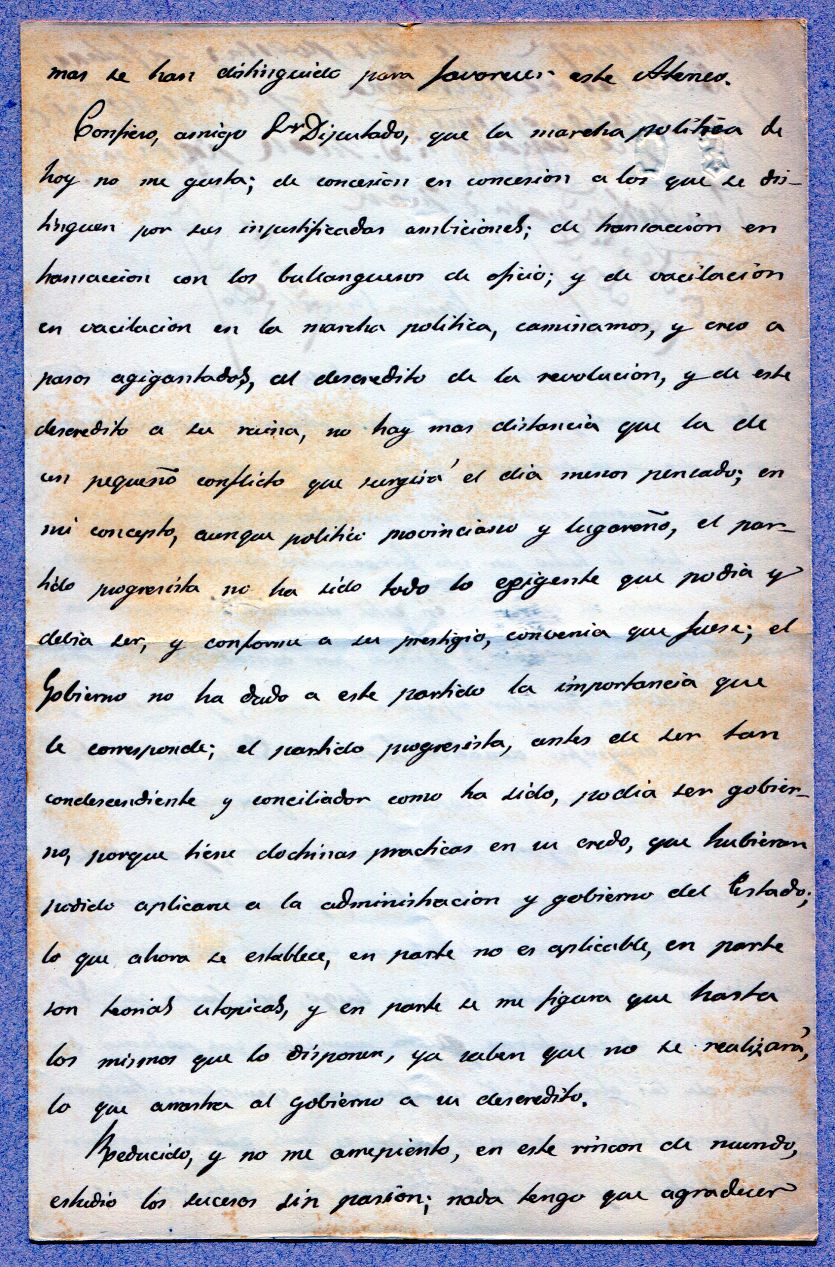 mas se han distinguido para favorecer este Ateneo.
Confieso, amigo Sr Diputado, que la marcha politica de
hoy no me gusta; de concesion en concesion a los que se dis-
tinguen por sus injustificadas ambiciones; de transacción en
transaccion con los bullangueros de oficio; y de vacilación
en vacilacion en la marcha politica, caminamos, y creo a
pasos agigantados, al descredito de la revolucion, y de este
descredito a su ruina, no hay mas distancia que la de
un pequeño conflicto que surgirá el dia menos pensado; en
mi concepto, aunque politico provinciano y lugareño, el par-
tido progresista no ha sido todo lo exigente que podia y
debia ser, y conforme a su prestigio, convenia que fuese; el
Gobierno no ha dado a este partido la importancia que
le corresponde; el partido progresista, antes de ser tan
condescendiente y conciliador como ha sido, podia ser gobier-
no, porque tiene doctrinas practicas en su credo, que hubieran
podido aplicarse a la administración y gobierno del Estado;
lo que ahora se establece, en parte no es aplicable, en parte
son teorias utopicas, y en parte se me figura que hasta
los mismos que lo disponen, ya saben que no se realizará,
lo que arrastra al gobierno a su descredito.
Reducido, y no me arrepiento, en este rincon de mundo,
estudio los sucesos sin pasión; nada tengo que agradecer